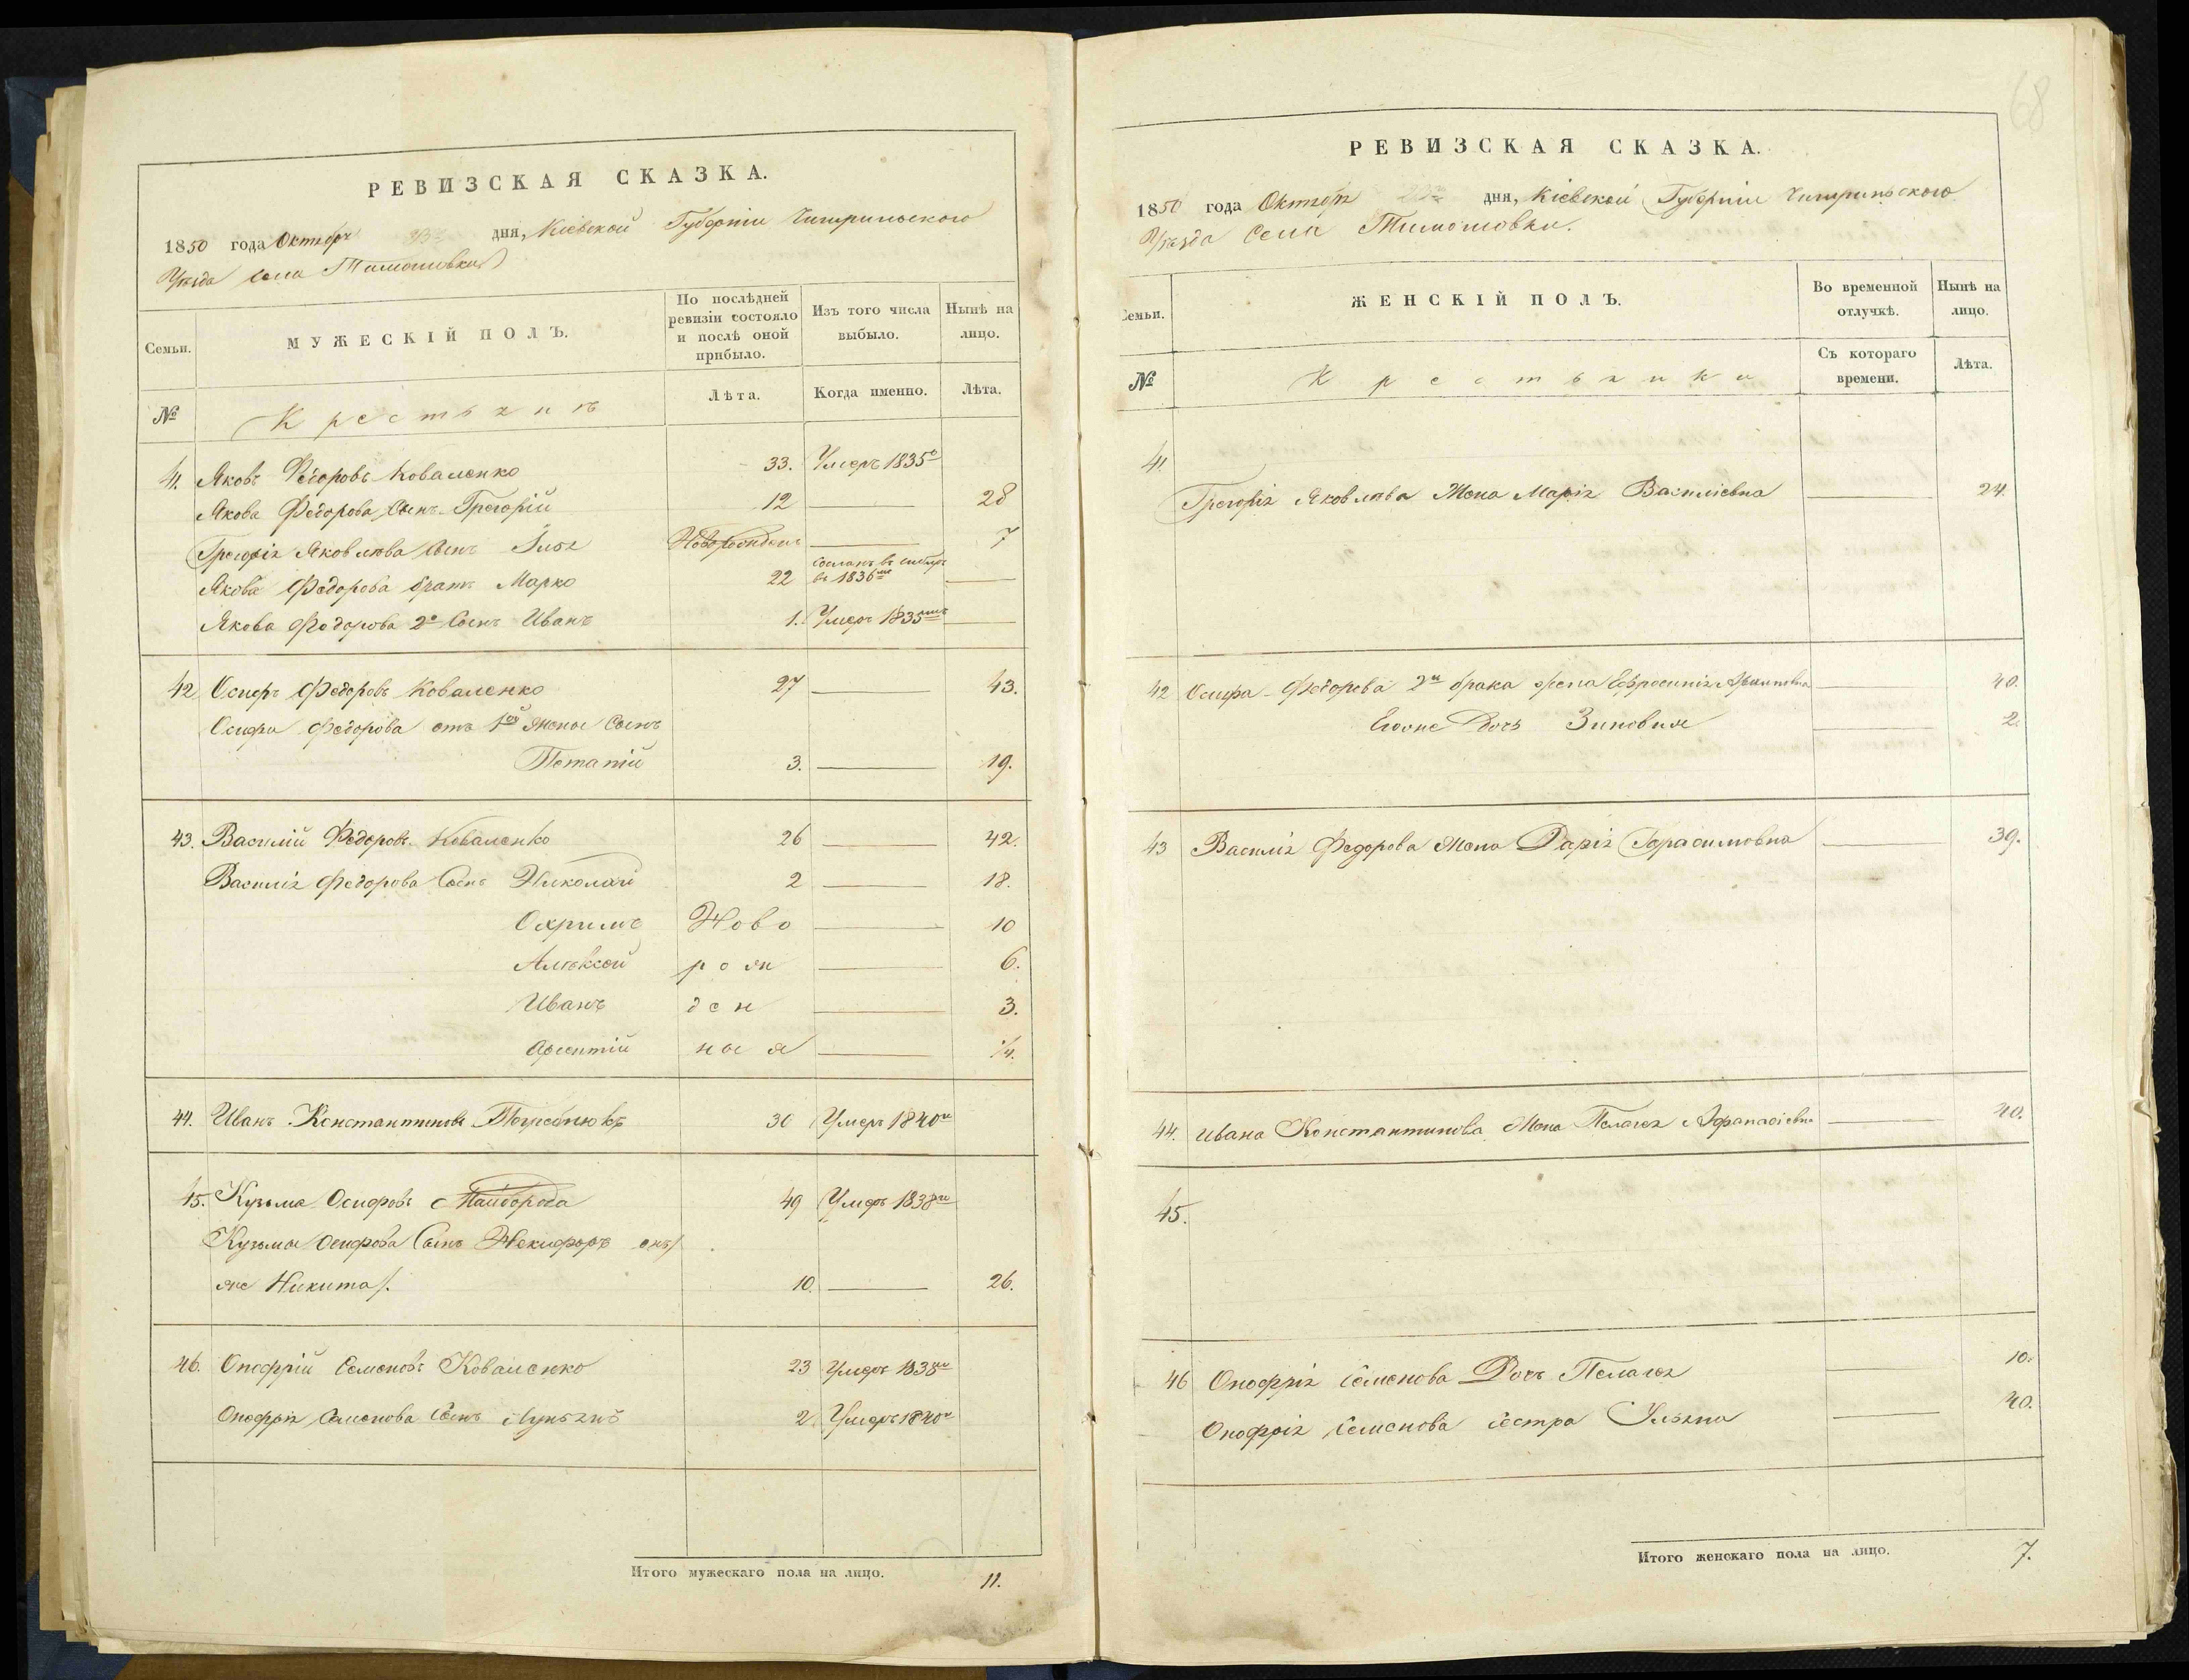 68
РЕВИЗСКАЯ СКАЗКА.
1850 года Октября дня, Кіевской Губерніи Чигиринского
Уѣзда Села Тимошовки
Семьи.
МУЖЕСКІЙ ПОЛЪ.
По послѣдней ревизіи состояло и послѣ оной прибыло.
Изъ того числа выбыло.
Нынѣ на лицо.
№
Крестьянъ
Лѣта.
Когда именно.
Лѣта.
41. Яковъ Федоровъ Коваленко 33. Умеръ 1835
Якова Федорова Сынъ Григорій 12 28
Григорія Яковлева Сынъ Илья Новорожден 7
Якова Федорова братъ Марко 22 сосланъ въ сибирь въ 1836
Якова Федорова 2й Сынъ Иванъ 1. Умеръ 1835
42 Осипъ Федоровъ Коваленко 27 43.
Осифа Федорова отъ 1ой жены Сынъ
Потапій 3. 19.
43. Василій Федоровъ Коваленко 26 42.
Василія Федорова Сынъ Николай 2 18.
Охримъ Ново 10
Алексѣй рож 6.
Иванъ ден 3.
Арсентій ныя 1/4.
44. Иванъ Константиновъ 30 Умеръ 1840
45. Кузьма Осифовъ Майборода 49 Умеръ 1838
Кузьмы Осифова Сынъ Некифоръ онъ/
же Никита/. 10. 26.
46. Онофрій Семеновъ Коваленко 23 Умеръ 1838
Онофрія Семенова Сынъ Лукьянъ 2. Умеръ 1840
Итого мужескаго пола на лицо. 11.
РЕВИЗСКАЯ СКАЗКА.
1850 года Октября дня, Кіевской Губерніи Чигиринского
Уѣзда Села Тимошовки.
Семьи.
ЖЕНСКІЙ ПОЛЪ.
Во временной отлучкѣ.
Нынѣ на лицо.
№
Крестьянки
Съ котораго времени.
Лѣта.
41.
Григорія Яковлева Жена Марія Василіевна 24.
42 Осифа Федорова 2го брака жена Евфросинія 40.
Егоже Дочь Зиновия 2.
43 Василія Федорова Жена Дарія Герасимовна 39.
44. Ивана Константинова Жена Пелагея Афанасіевна 40.
45.
46 Онофрія Семенова Дочь Пелагея 10.
Онофрія Семенова сестра Ульяна 40.
Итого женскаго пола на лицо. 7.